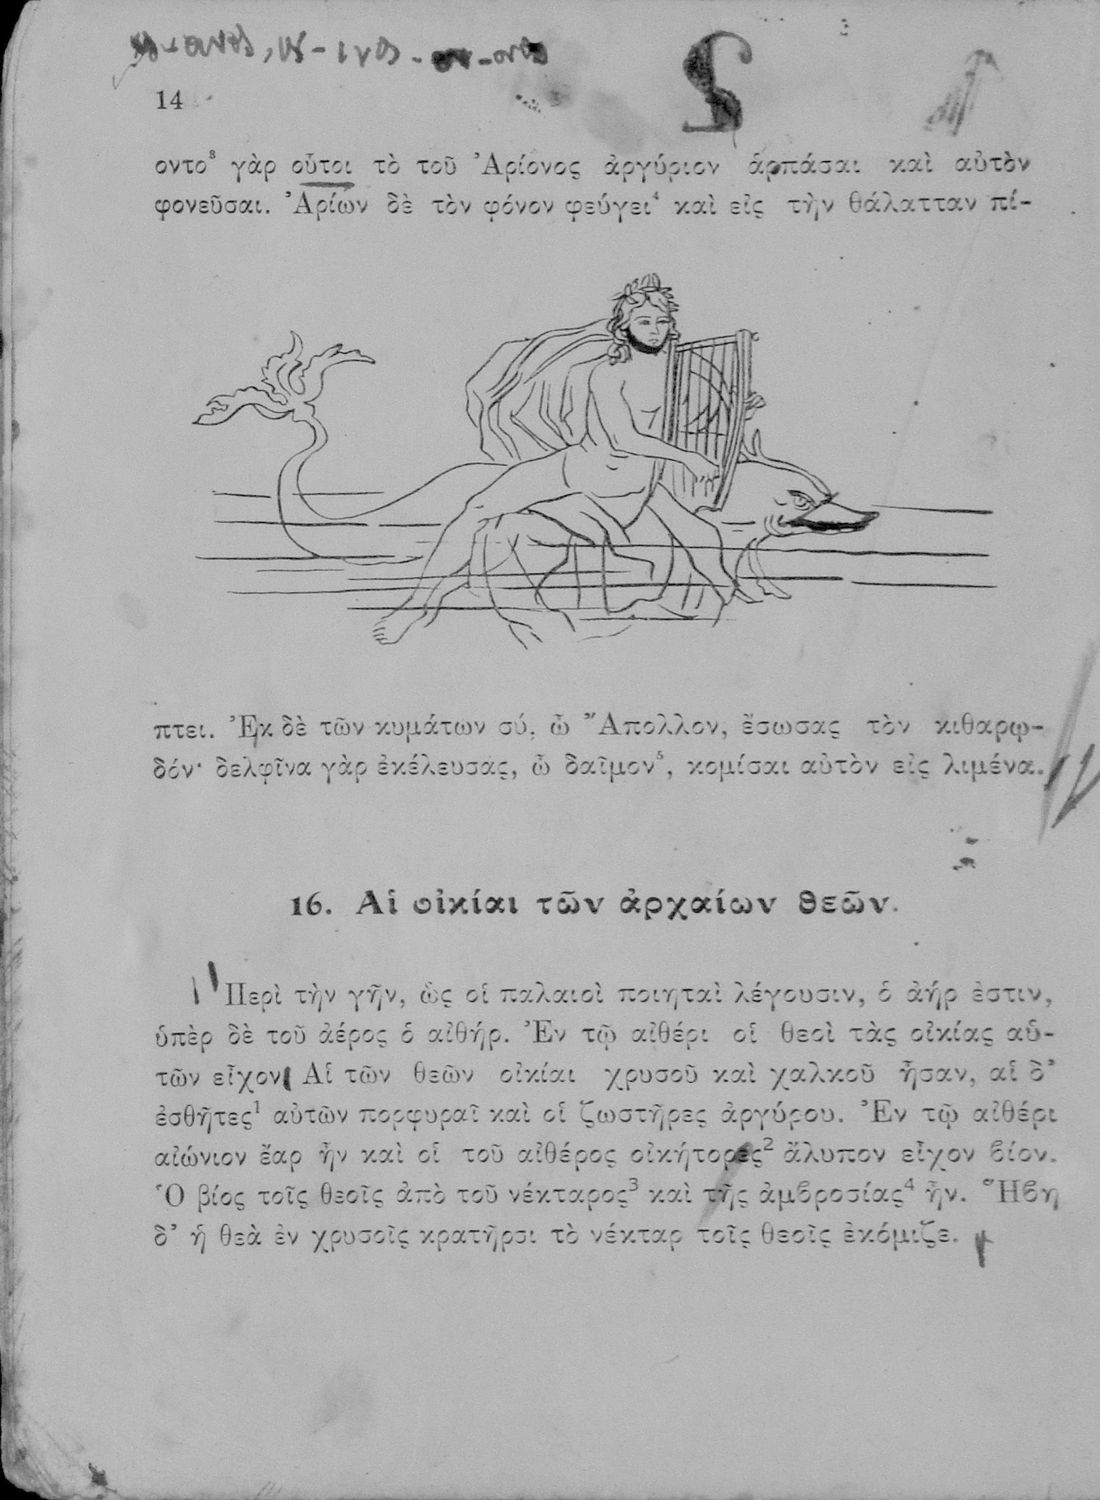 14
οντο³ γὰρ οὗτοι τὸ τοῦ Ἀρίονος ἀργύριον ἁρπάσαι καὶ αὐτὸν
φονεῦσαι. Ἀρίων δὲ τὸν φόνον φεύγει⁴ καὶ εἰς τὴν θάλατταν πί-
πτει. Ἐκ δὲ τῶν κυμάτων σύ, ὦ Ἄπολλον, ἔσωσας τὸν κιθαρῳ-
δόν· δελφῖνα γὰρ ἐκέλευσας, ὦ δαῖμον⁵, κομίσαι αὐτὸν εἰς λιμένα.
16. Αἱ οἰκίαι τῶν ἀρχαίων θεῶν.
Περὶ τὴν γῆν, ὡς οἱ παλαιοὶ ποιηταὶ λέγουσιν, ὁ ἀήρ ἐστιν,
ὑπὲρ δὲ τοῦ ἀέρος ὁ αἰθήρ. Ἐν τῷ αἰθέρι οἱ θεοὶ τὰς οἰκίας αὑ-
τῶν εἶχον. Αἱ τῶν θεῶν οἰκίαι χρυσοῦ καὶ χαλκοῦ ἦσαν, αἱ δ’
ἐσθῆτες¹ αὐτῶν πορφυραῖ καὶ οἱ ζωστῆρες ἀργύρου. Ἐν τῷ αἰθέρι
αἰώνιον ἔαρ ἦν καὶ οἱ τοῦ αἰθέρος οἰκήτορες² ἄλυπον εἶχον βίον.
Ὁ βίος τοῖς θεοῖς ἀπὸ τοῦ νέκταρος³ καὶ τῆς ἀμβροσίας⁴ ἦν. Ἥβη
δ’ ἡ θεὰ ἐν χρυσοῖς κρατῆρσι τὸ νέκταρ τοῖς θεοῖς ἐκόμιζε.